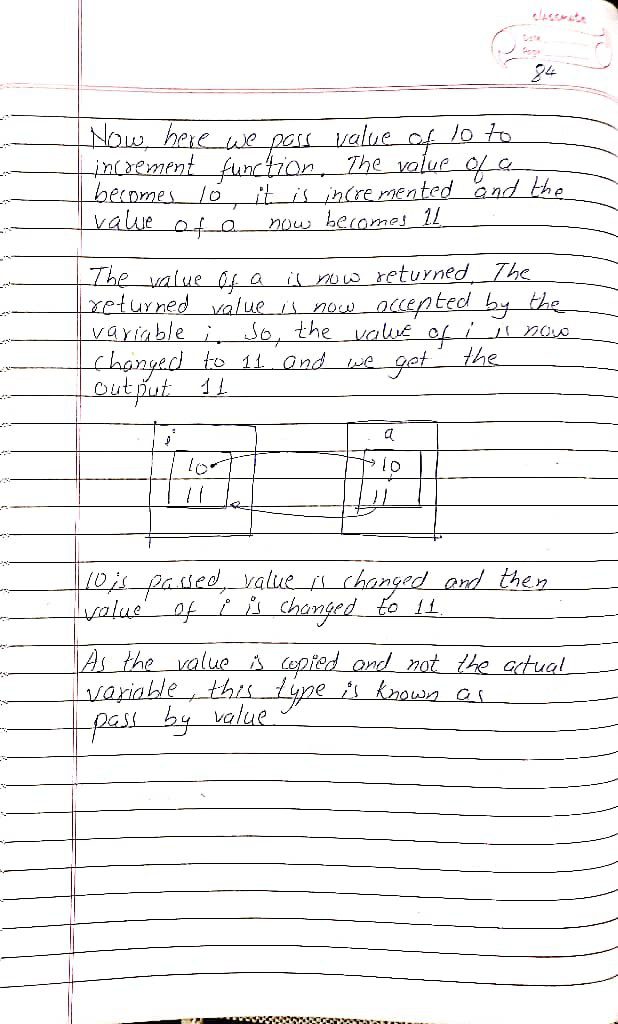 classmate
Date
Page
84
Now, here we pass value of 10 to
increment function. The value of a
becomes 10, it is incremented and the
value of a now becomes 11
The value of a is now returned. The
returned value is now accepted by the
variable i. So, the value of i is now
changed to 11 and we get the
output 11
i a
10 10
11 11
10 is passed, value is changed and then
value of i is changed to 11.
As the value is copied and not the actual
variable, this type is known as
pass by value